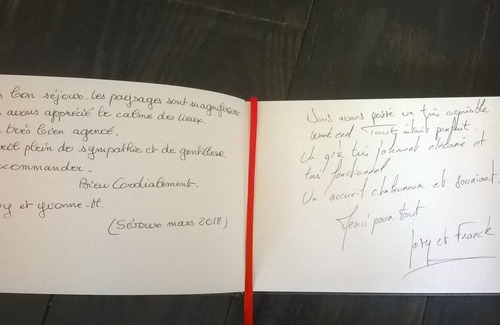 bon séjour. Les paysages sont magnifiques
avons apprécié le calme des lieux.
très bien agencé.
plein de sympathie et de gentillesse.
commander.
Bien Cordialement.
et Yvonne
(Séjour mars 2018)
Nous avons passé un très agréable
week end Tout était parfait.
Un gîte très joliment décoré et
très fonctionnel
Un accueil chaleureux et souriant.
Merci pour tout
Josy et Franck